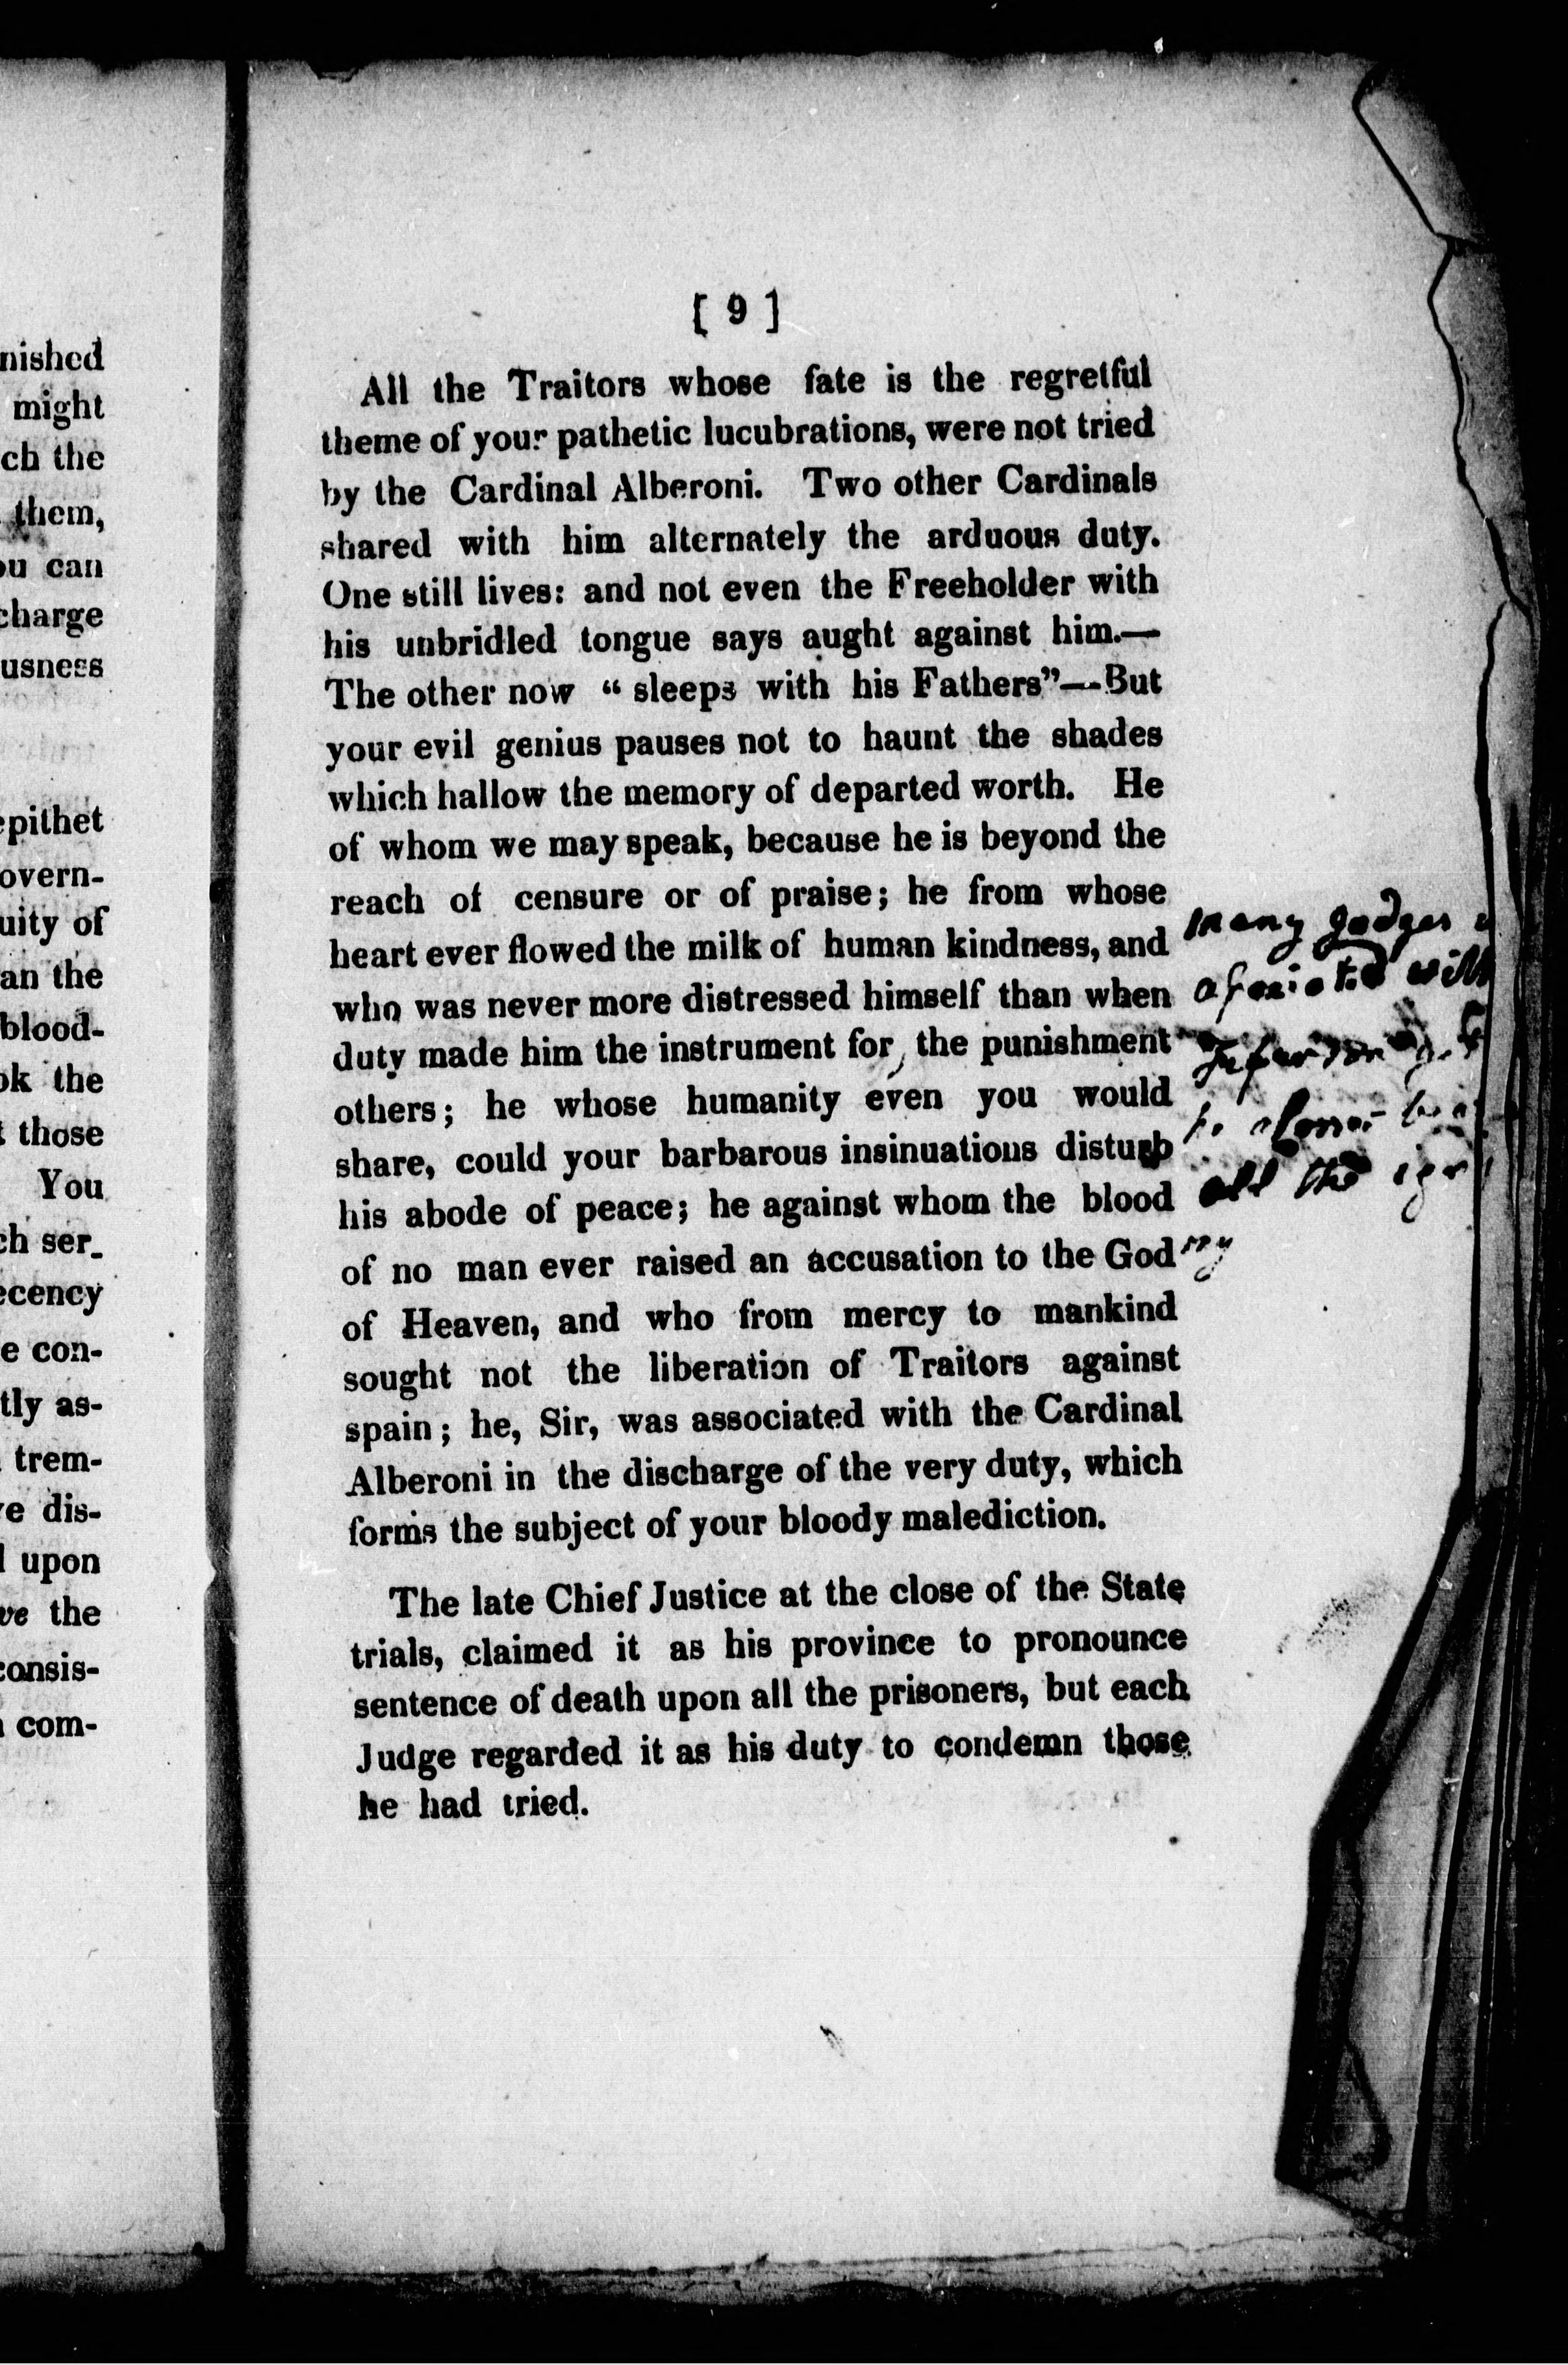 nished
might
ch the
them,
ou can
charge
usness
epithet
overn-
uity of
an the
blood-
ok the
t those
You
ch ser-
ecency
e con-
tly as-
trem-
e dis-
upon
ve the
consis-
com-
[ 9 ]
All the Traitors whose fate is the regretful
theme of your pathetic lucubrations, were not tried
by the Cardinal Alberoni. Two other Cardinals
shared with him alternately the arduous duty.
One still lives: and not even the Freeholder with
his unbridled tongue says aught against him.—
The other now “ sleeps with his Fathers”—But
your evil genius pauses not to haunt the shades
which hallow the memory of departed worth. He
of whom we may speak, because he is beyond the
reach of censure or of praise; he from whose
heart ever flowed the milk of human kindness, and
who was never more distressed himself than when
duty made him the instrument for, the punishment
others; he whose humanity even you would
share, could your barbarous insinuations disturb
his abode of peace; he against whom the blood
of no man ever raised an accusation to the God
of Heaven, and who from mercy to mankind
sought not the liberation of Traitors against
spain; he, Sir, was associated with the Cardinal
Alberoni in the discharge of the very duty, which
forms the subject of your bloody malediction.
The late Chief Justice at the close of the State
trials, claimed it as his province to pronounce
sentence of death upon all the prisoners, but each
Judge regarded it as his duty to condemn those
he had tried.
many
all the